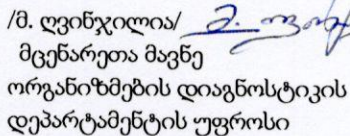 /მ. ღვინჯილია/
მცენარეთა მავნე
ორგანიზმების დიაგნოსტიკის
დეპარტამენტის უფროსი